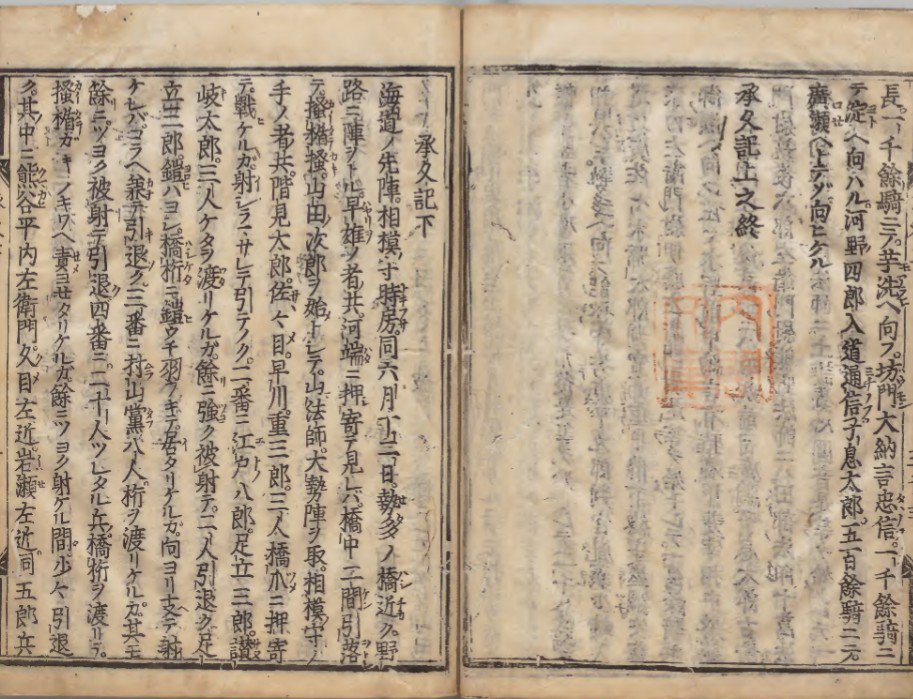 長一千餘騎ニテ芋洗ヘ向フ坊門大納言忠信一千餘騎ニ
テ淀ヘ向ハル河野四郎入道通信子息太郎五百餘騎ニテ
廣瀬ヘトテゾ向ヒケル
承久記上之終
承久記下
海道ノ先陣相摸守時房同六月十三日勢多ノ橋近ク野
路ニ陣ヲトル早雄ノ者共河端ニ押寄テ見レバ橋中二間引落
テ掻楯掻山田次郎ヲ始トシテ山法師大勢陣ヲ取相摸守ノ
手ノ者共階見太郎佐々目早川重三郎三人橋爪ニ押寄
テ戦ケルガ射シラマサレテ引テノク二番ニ江戸八郎足立三郎讃
岐太郎三人ケタヲ渡リケルガ餘ニ強ク被射テ二人引退ク足
立三郎鎧ハヨシ橋桁ニ鎧ウチ羽フキテ居タリケルガ向ヨリ支テ射
ケレバコラヘ兼テ引退ク三番ニ村山黨八人桁ヲ渡リケルガ其モ
餘ニツヨク被射テ引退四番ニ二十人ツレタル兵橋桁ヲ渡リテ
掻楯ガキノキワヘ責ヨセタリケルガ餘ニツヨク射ケル間少々引退
ク其中ニ熊谷平内左衛門久目左近岩瀬左近同五郎兵